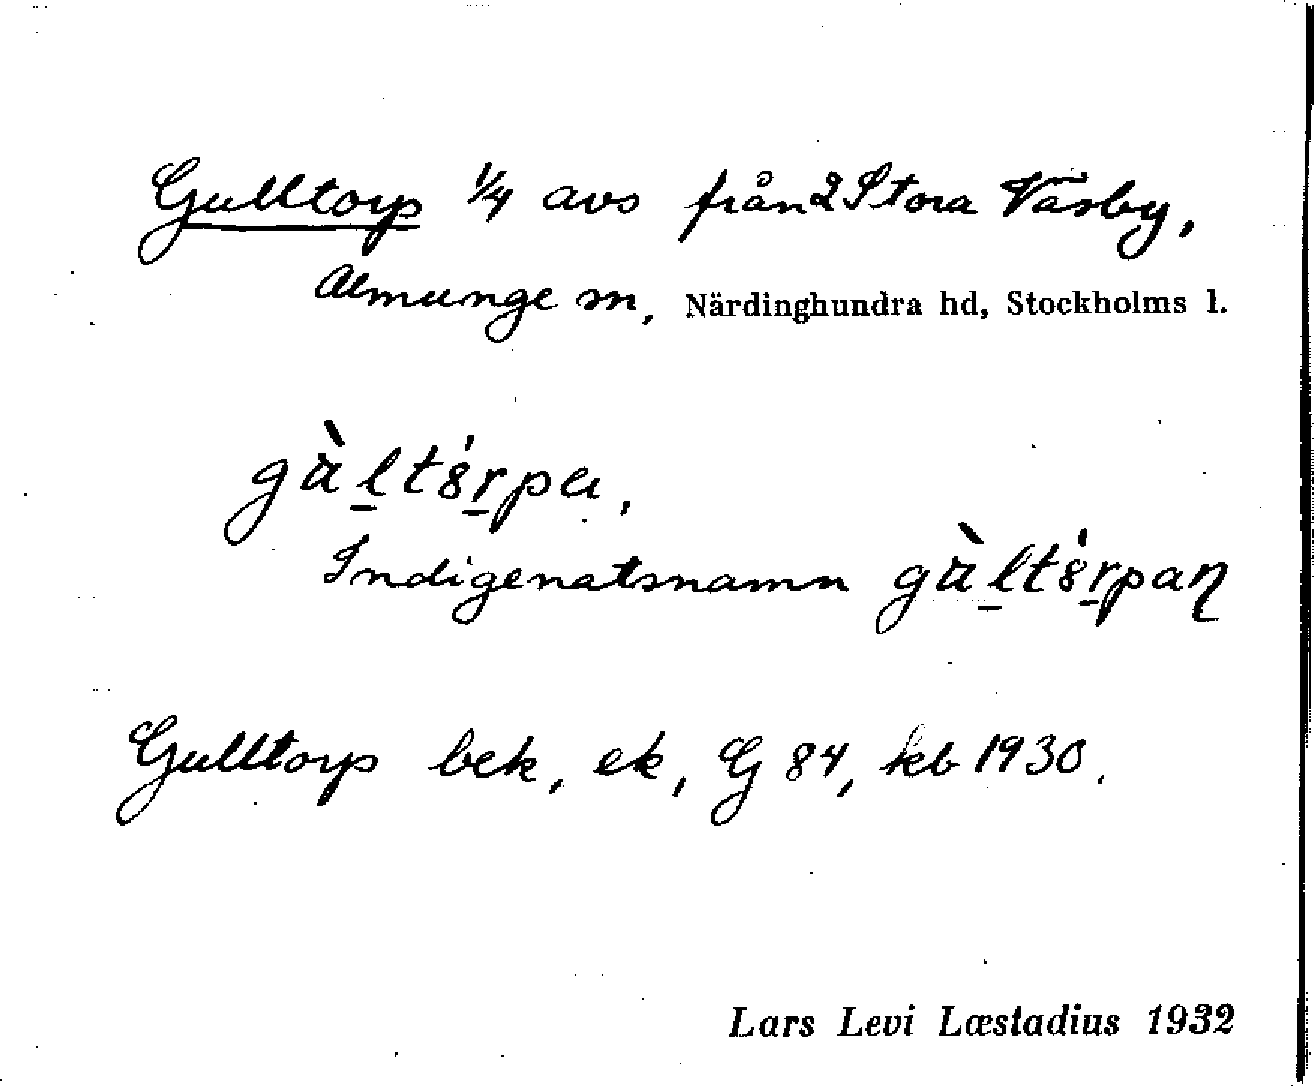 Gulltorp 1/4 avs från 2 Stora Väsby,
Almunge sn, Närdinghundra hd, Stockholms l.
gὰltȣ́rpa,
Indigenatsnamn gὰltȣ́rpaꞃ
Gulltorp bek, ek, G 84, kb 1930.
Lars Levi Læstadius 1932